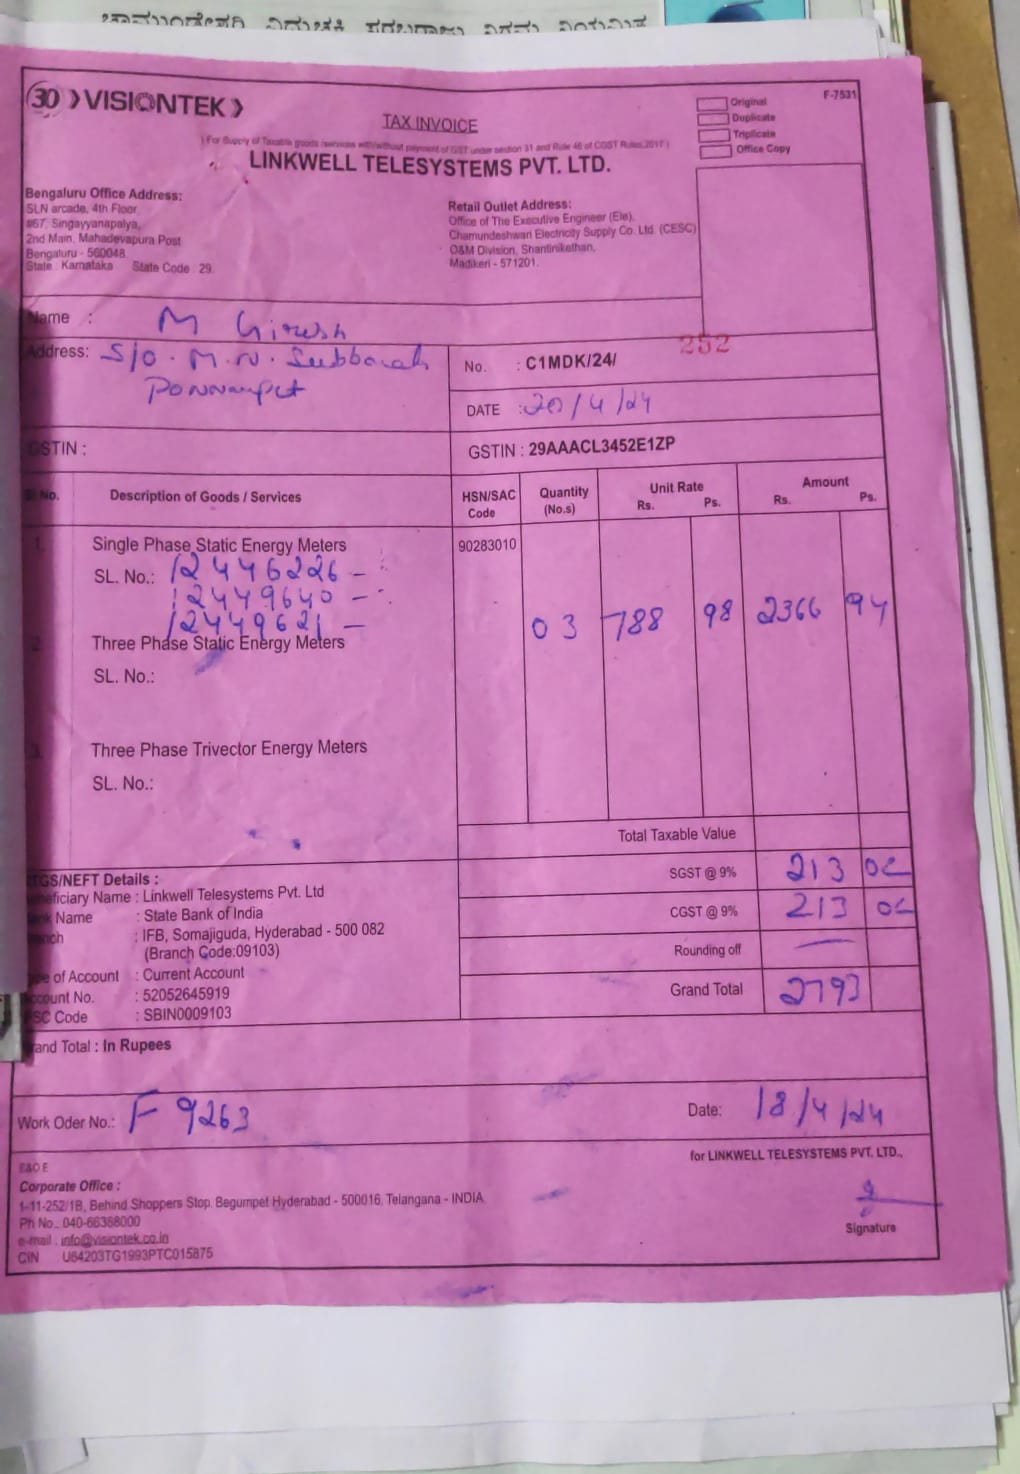 30 VISIONTEK
TAX INVOICE
Original
Duplicate
Triplicate
Office Copy
F-7531
( For Supply of Taxable goods /services with/without payment of GST under section 31 and Rule 46 of CGST Rules,2017 )
LINKWELL TELESYSTEMS PVT. LTD.
Bengaluru Office Address:
SLN arcade, 4th Floor,
#67, Singayyanapalya,
2nd Main, Mahadevapura Post
Bengaluru - 560048.
State : Karnataka State Code : 29.
Retail Outlet Address:
Office of The Executive Engineer (Ele),
Chamundeshwari Electricity Supply Co. Ltd. (CESC)
O&M Division, Shantinikethan,
Madikeri - 571201.
Name : M Giresh
Address: S/O. M.N. Subbaiah
Ponnampet
No. : C1MDK/24/ 252
DATE : 20/4/24
GSTIN :
GSTIN : 29AAACL3452E1ZP
Sl No. Description of Goods / Services HSN/SAC Code Quantity (No.s) Unit Rate Rs. Ps. Amount Rs. Ps.
1. Single Phase Static Energy Meters 90283010
SL. No.: 12446226 -
12449640 -
12449621 -
03 788 98 2366 94
2. Three Phase Static Energy Meters
SL. No.:
3. Three Phase Trivector Energy Meters
SL. No.:
Total Taxable Value
SGST @ 9% 213 02
CGST @ 9% 213 02
Rounding off —
Grand Total 2793
RTGS/NEFT Details :
Beneficiary Name : Linkwell Telesystems Pvt. Ltd
Bank Name : State Bank of India
Branch : IFB, Somajiguda, Hyderabad - 500 082
(Branch Code:09103)
Type of Account : Current Account
Account No. : 52052645919
IFSC Code : SBIN0009103
Grand Total : In Rupees
Work Oder No.: F 9263
Date: 18/4/24
for LINKWELL TELESYSTEMS PVT. LTD.,
E&O E
Corporate Office :
1-11-252/1B, Behind Shoppers Stop, Begumpet Hyderabad - 500016, Telangana - INDIA
Ph No.. 040-66368000
e-mail : info@visiontek.co.in
CIN U64203TG1993PTC015875
Signature